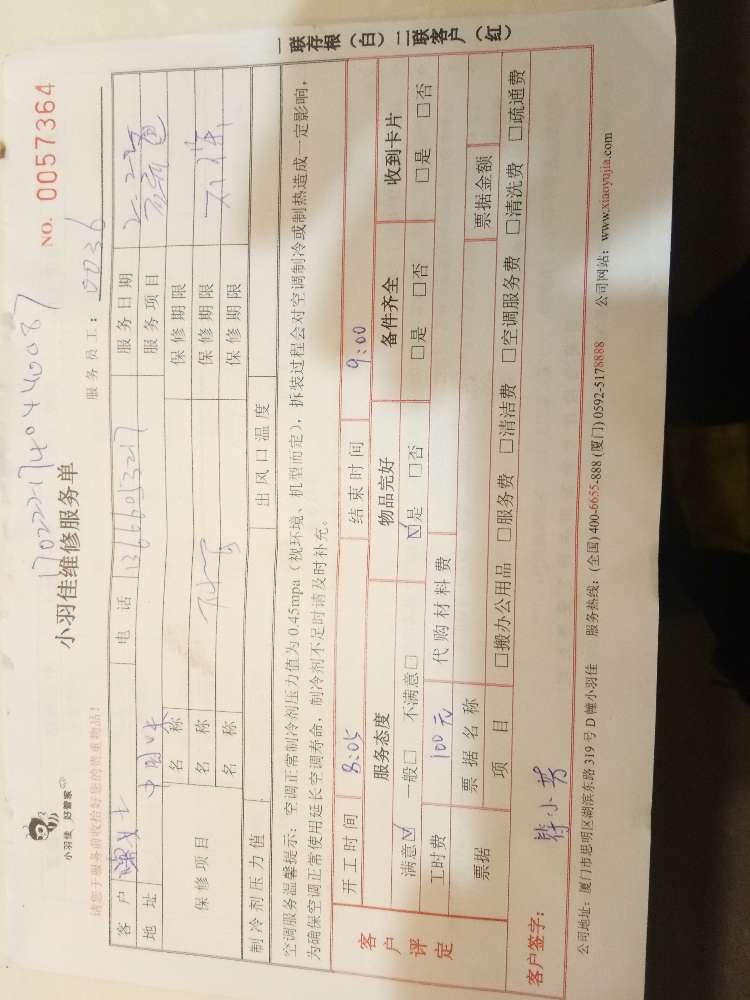 一联存根（白）二联客户（红）
小羽佳 好管家
小羽佳维修服务单
NO. 0057364
请您于服务前收拾好您的贵重物品！
服务员工： 0036
客户 电话 13666053217 服务日期
地址 中国 服务项目
保修项目 名称 保修期限
名称 保修期限
名称 保修期限
制冷剂压力值 出风口温度
空调服务温馨提示：空调正常制冷剂压力值为0.45mpa（视环境、机型而定），拆装过程会对空调制冷或制热造成一定影响，
为确保空调正常使用延长空调寿命，制冷剂不足时请及时补充。
客户评定
开工时间 8:05 结束时间 9:00
服务态度 物品完好 备件齐全 收到卡片
满意☑ 一般□ 不满意□ ☑是 □否 □是 □否 □是 □否
工时费 100元 代购材料费
票据 票据名称 票据金额
项目 □搬办公用品 □服务费 □清洁费 □空调服务费 □清洗费 □疏通费
客户签字：
公司地址：厦门市思明区湖滨东路319号D幢小羽佳 服务热线：(全国) 400-6655-888 (厦门) 0592-5178888 公司网站：www.xiaoyujia.com